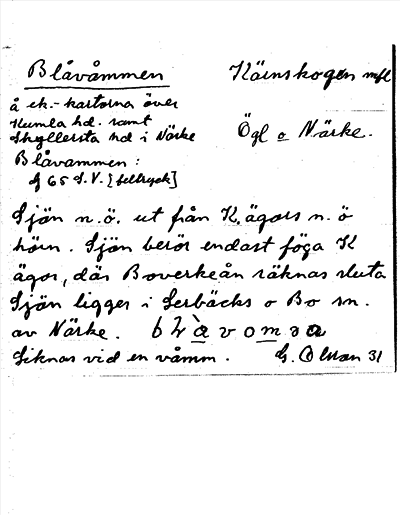 Blåvåmmen
Kärnskogen mfl
å ek.-kartorna över
Kumla hd. samt
Skyllersta hd i Närke
Ögl o Närke.
Blåvammen:
bl 65 S.V. [feltryck]
Sjön n.ö. ut från K. ägors n.ö
hörn. Sjön berör endast föga K
ägor, där Boverkeån räknas sluta
Sjön ligger i Lerbäcks o Bo sn.
av Närke.
Liknas vid en våmm.
G. Olsson 31